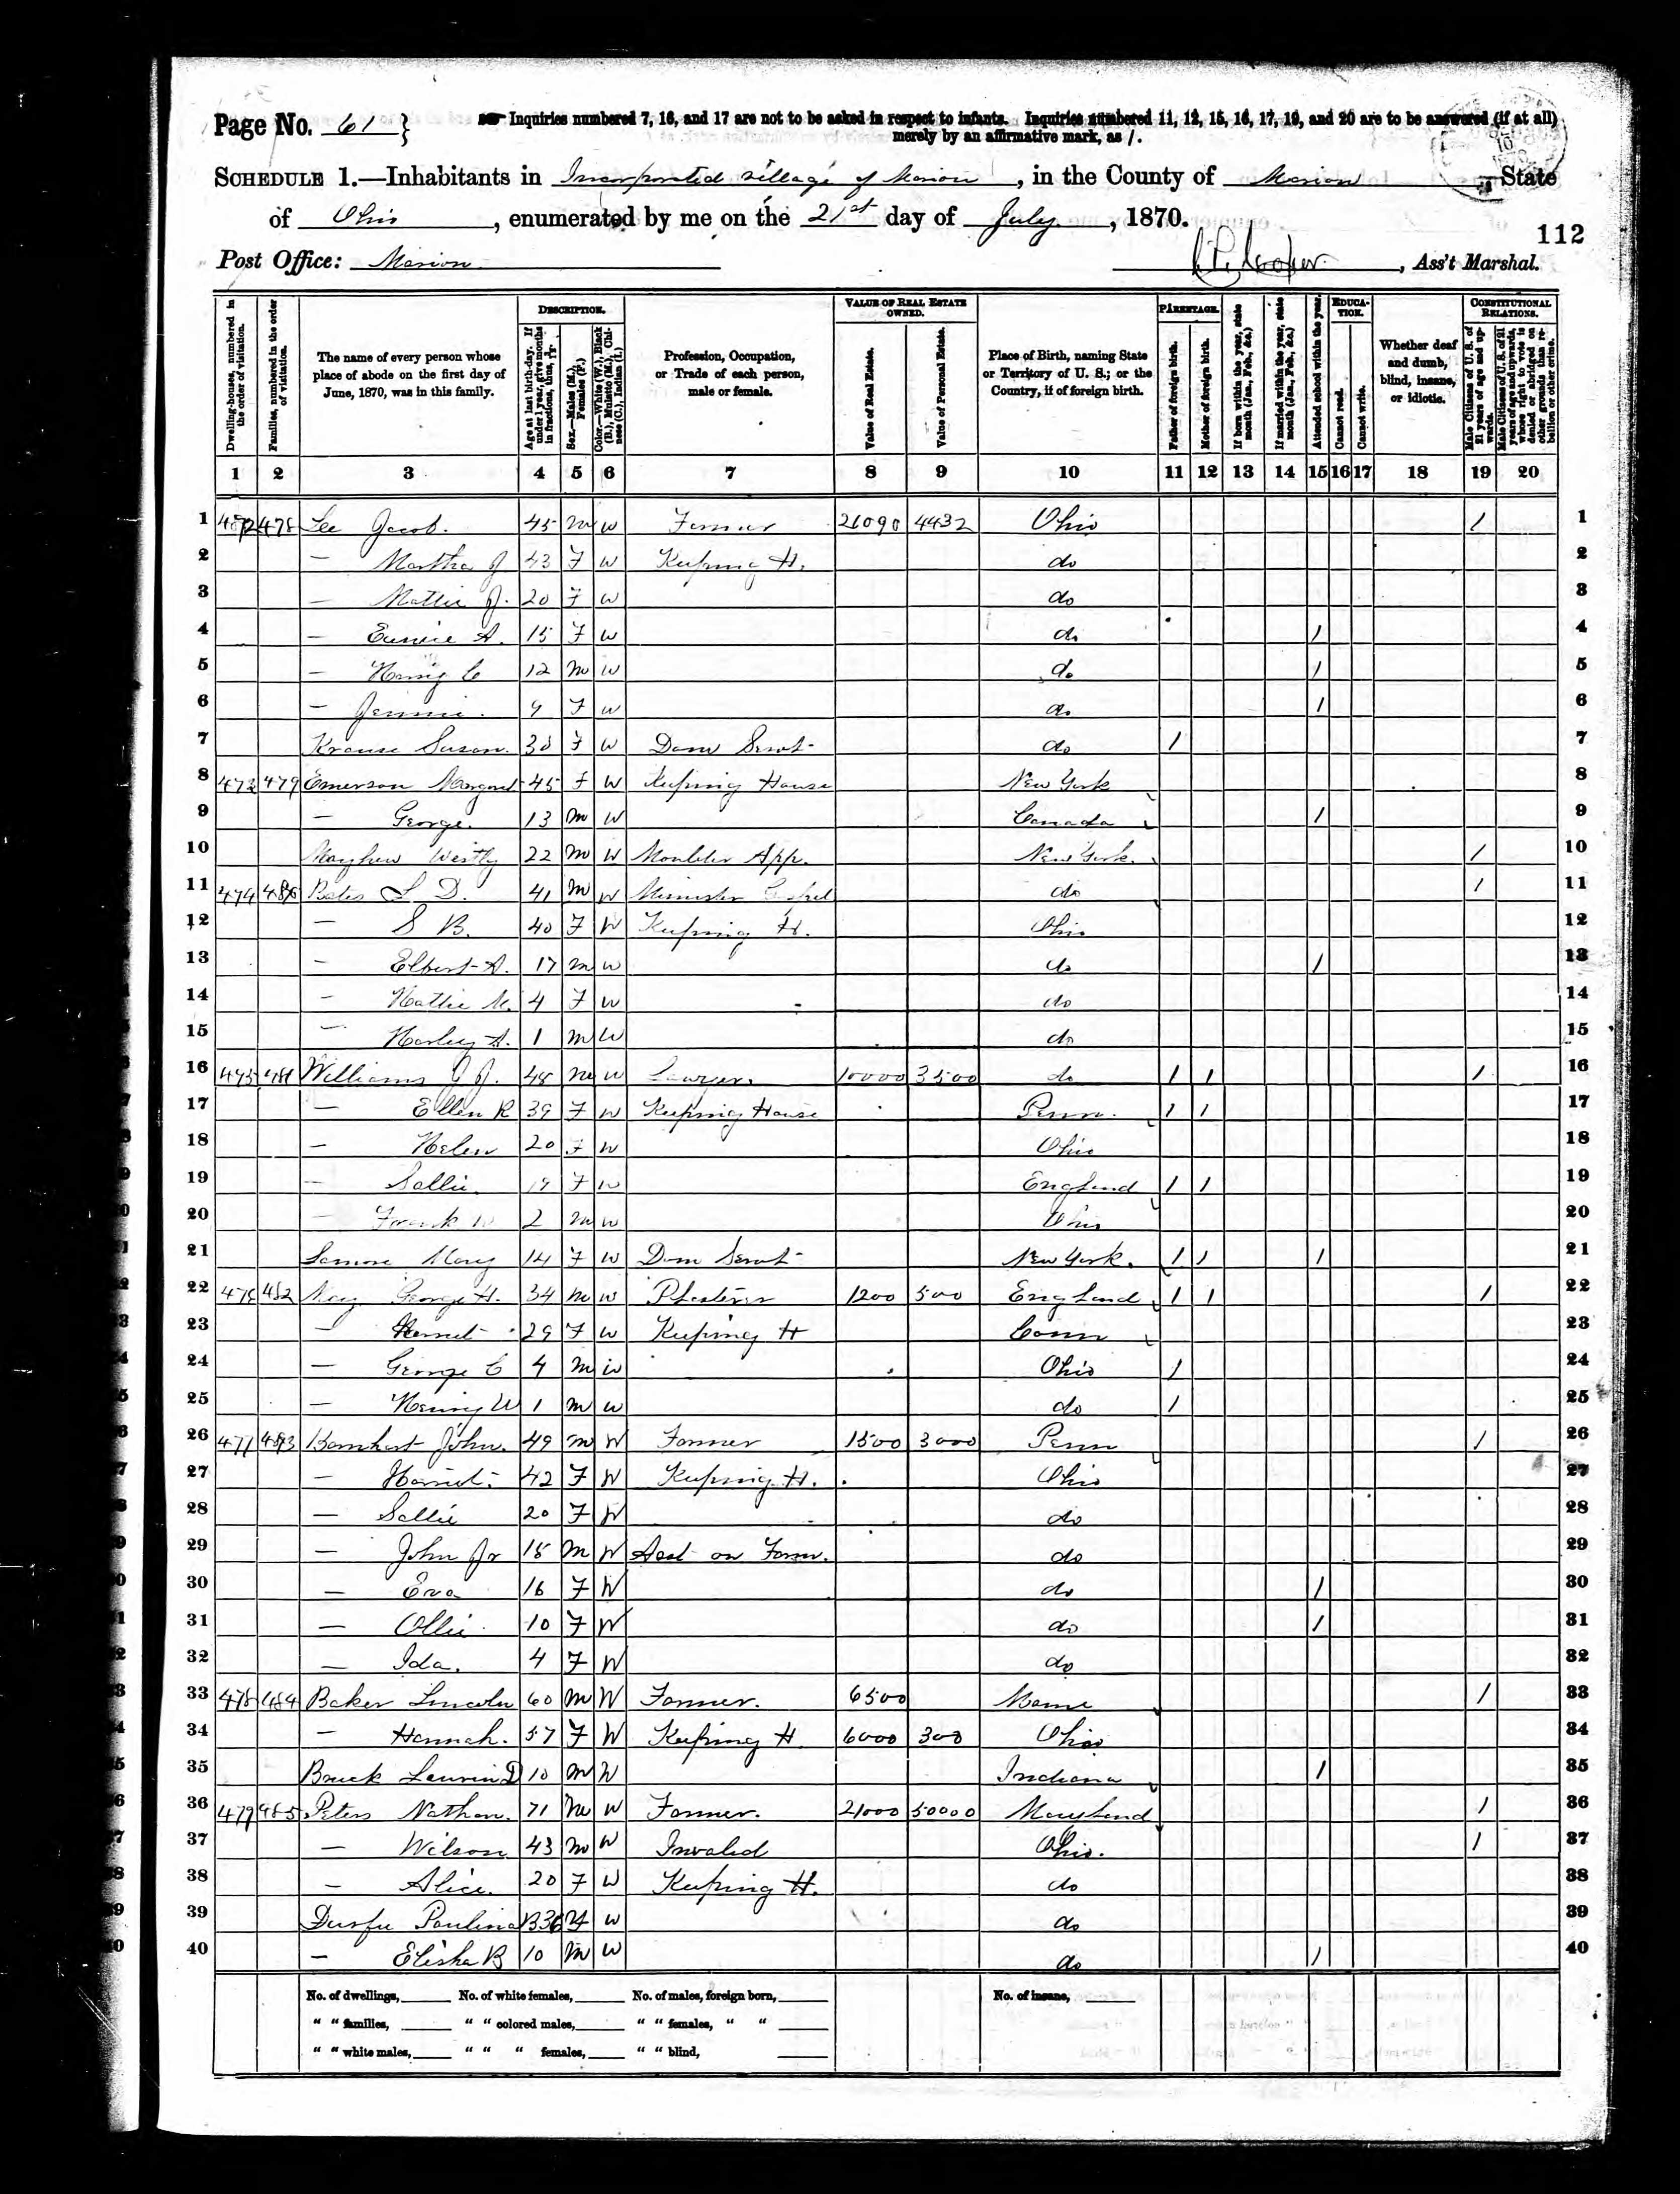 Page No. 61 }
Inquiries numbered 7, 16, and 17 are not to be asked in respect to infants. Inquiries numbered 11, 12, 15, 16, 17, 19, and 20 are to be answered (if at all)
merely by an affirmative mark, as /.
SCHEDULE 1.—Inhabitants in Incorporated village of Marion, in the County of Marion State
of Ohio, enumerated by me on the 21st day of July, 1870.
112
Post Office: Marion Cooper, Ass't Marshal.
Dwelling-houses, numbered in the order of visitation.
Families, numbered in the order of visitation.
The name of every person whose place of abode on the first day of June, 1870, was in this family.
DESCRIPTION.
Age at last birth-day. If under 1 year, give months in fractions, thus,
Sex.—Males (M.), Females (F.)
Color.—White (W.), Black (B.), Mulatto (M.), Chinese (C.), Indian (I.)
Profession, Occupation, or Trade of each person, male or female.
VALUE OF REAL ESTATE OWNED.
Value of Real Estate.
Value of Personal Estate.
Place of Birth, naming State or Territory of U. S.; or the Country, if of foreign birth.
PARENTAGE.
Father of foreign birth.
Mother of foreign birth.
If born within the year, state month (Jan., Feb., &c.)
If married within the year, state month (Jan., Feb., &c.)
Attended school within the year.
EDUCATION.
Cannot read.
Cannot write.
Whether deaf and dumb, blind, insane, or idiotic.
CONSTITUTIONAL RELATIONS.
Male Citizens of U. S. of 21 years of age and upwards.
Male Citizens of U. S. of 21 years of age and upwards, whose right to vote is denied or abridged on other grounds than rebellion or other crime.
1 2 3 4 5 6 7 8 9 10 11 12 13 14 15 16 17 18 19 20
1 472 478 Lee Jacob. 45 M W Farmer 21090 4432 Ohio / 1
2 — Martha J. 43 F W Keeping H. do 2
3 — Mattie J. 20 F W do 3
4 — Eunice A. 15 F W do / 4
5 — Henry C 12 M W do / 5
6 — Jennie. 9 F W do / 6
7 Krause Susan. 30 F W Dom Servt do / 7
8 473 479 Emerson Margaret 45 F W Keeping House New York 8
9 — George. 13 M W Canada / 9
10 Mayhew Westly 22 M W Moulder App. New York. / 10
11 474 480 Bates L D. 41 M W Minister Gospel do / 11
12 — S B. 40 F W Keeping H. Ohio 12
13 — Elbert A. 17 M W do / 13
14 — Hattie M. 4 F W do 14
15 — Harley A. 1 M W do 15
16 475 481 Williams J J. 48 M W Lawyer. 10000 3500 do / / / 16
17 — Ellen R 39 F W Keeping House Penn. / / 17
18 — Helen 20 F W Ohio 18
19 — Sallie. 19 F W England / / 19
20 — Frank W 2 M W Ohio 20
21 Mary 14 F W Dom Servt New York. / / / 21
22 476 482 May George H. 34 M W Plasterer 1200 500 England / / / 22
23 — Harriet 29 F W Keeping H Conn 23
24 — George C 4 M W Ohio / 24
25 — Henry W 1 M W do / 25
26 477 483 Barnhart John. 49 M W Farmer 1500 3000 Penn / 26
27 — Harriet. 42 F W Keeping H. Ohio 27
28 — Sallie 20 F W do 28
29 — John Jr 18 M W Asst on Farm. do 29
30 — Eva 16 F W do / 30
31 — Ollie 10 F W do / 31
32 — Ida. 4 F W do 32
33 478 484 Baker Lincoln 60 M W Farmer. 6500 Maine / 33
34 — Hannah. 57 F W Keeping H 6000 300 Ohio 34
35 10 M W Indiana / 35
36 479 485 Peters Nathan. 71 M W Farmer. 21000 50000 Maryland / 36
37 — Wilson 43 M W Invalid Ohio. / 37
38 — Alice. 20 F W Keeping H. do 38
39 Durfee Paulina B 36 F W do 39
40 — Elisha B 10 M W do / 40
No. of dwellings, No. of white females, No. of males, foreign born, No. of insane,
" " families, " " colored males, " " females, " "
" " white males, " " " females, " " blind,